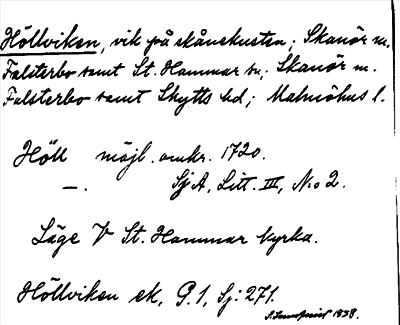 Höllviken, vik på skånekusten; Skanör m.
Falsterbo samt St. Hammar sn; Skanör m.
Falsterbo samt Skytts hd; Malmöhus l.
Höll möjl. omkr. 1720.
—. SjA, Litt. III, No 2.
Läge V St. Hammar kyrka.
Höllviken ek, G.1, Sj: 271.
1938.